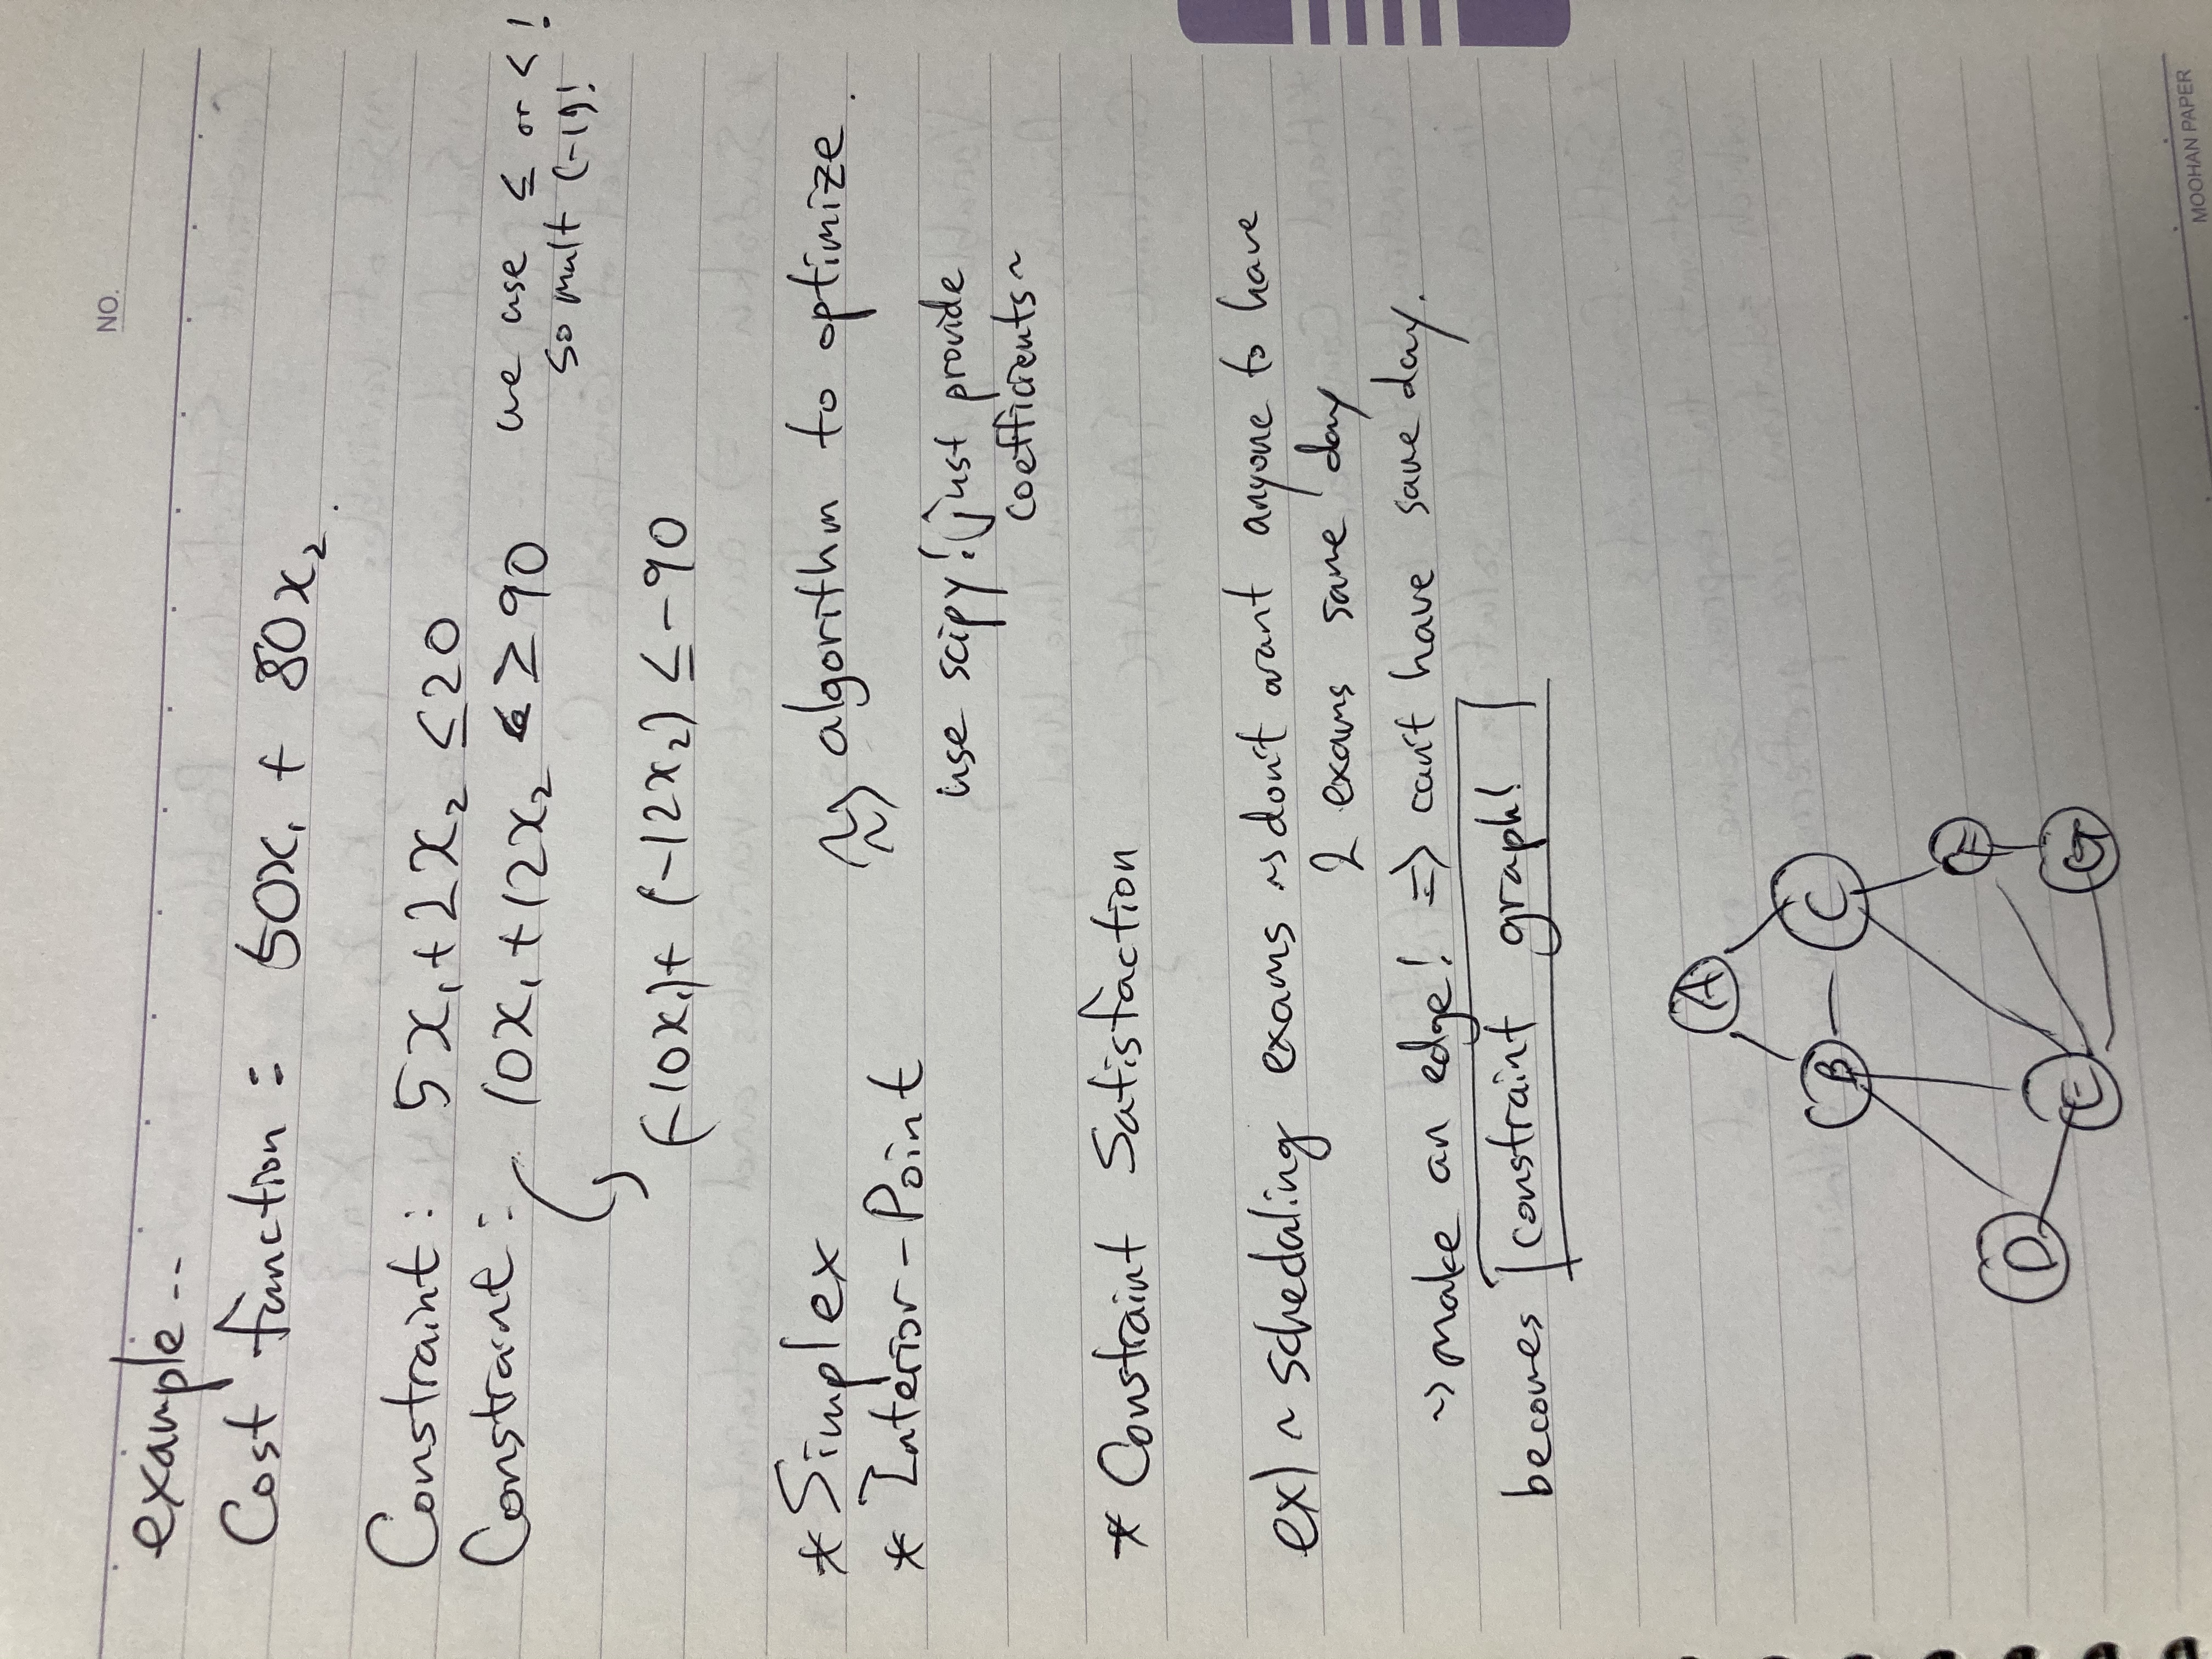 NO.
example --
Cost function : 50x₁ + 80x₂.
Constraint : 5x₁+2x₂ ≤20
Constraint : 10x₁+12x₂ ≥ 90 we use ≤ or <!
so mult (-1)!
(-10x₁)+ (-12x₂) ≤ -90
* Simplex ~> algorithm to optimize.
* Interior-Point
use scipy! just provide
coefficients~
* Constraint Satisfaction
ex) ~ scheduling exams ~> don't want anyone to have
2 exams same day
~> make an edge! => can't have same day.
becomes constraint graph!
A
B C
F
D E G
MOOHAN PAPER